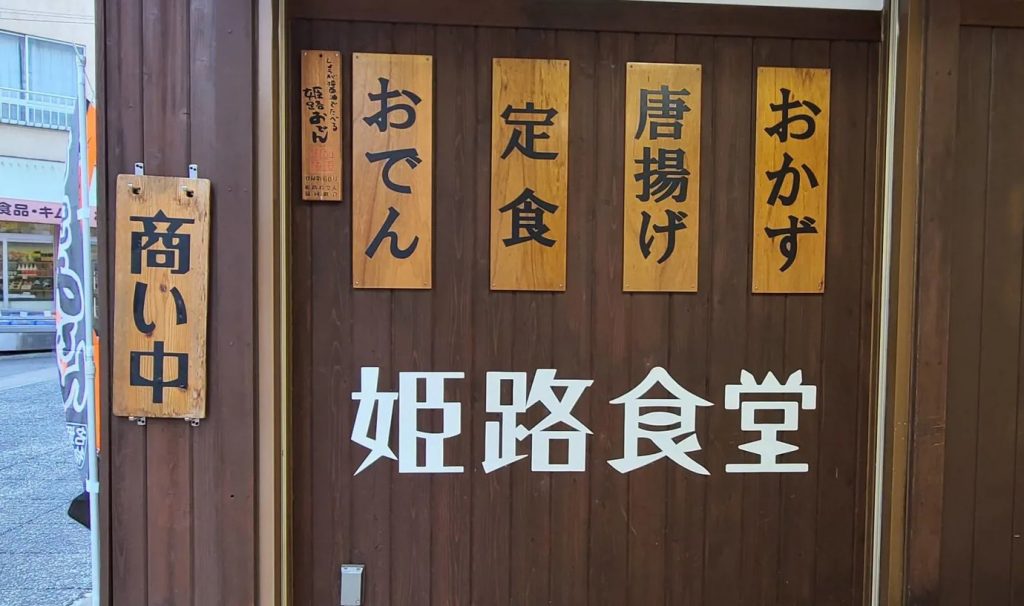 商い中
しょうが醤油でたべる
姫路おでん
おでん
定食
唐揚げ
おかず
姫路食堂
食品・キム